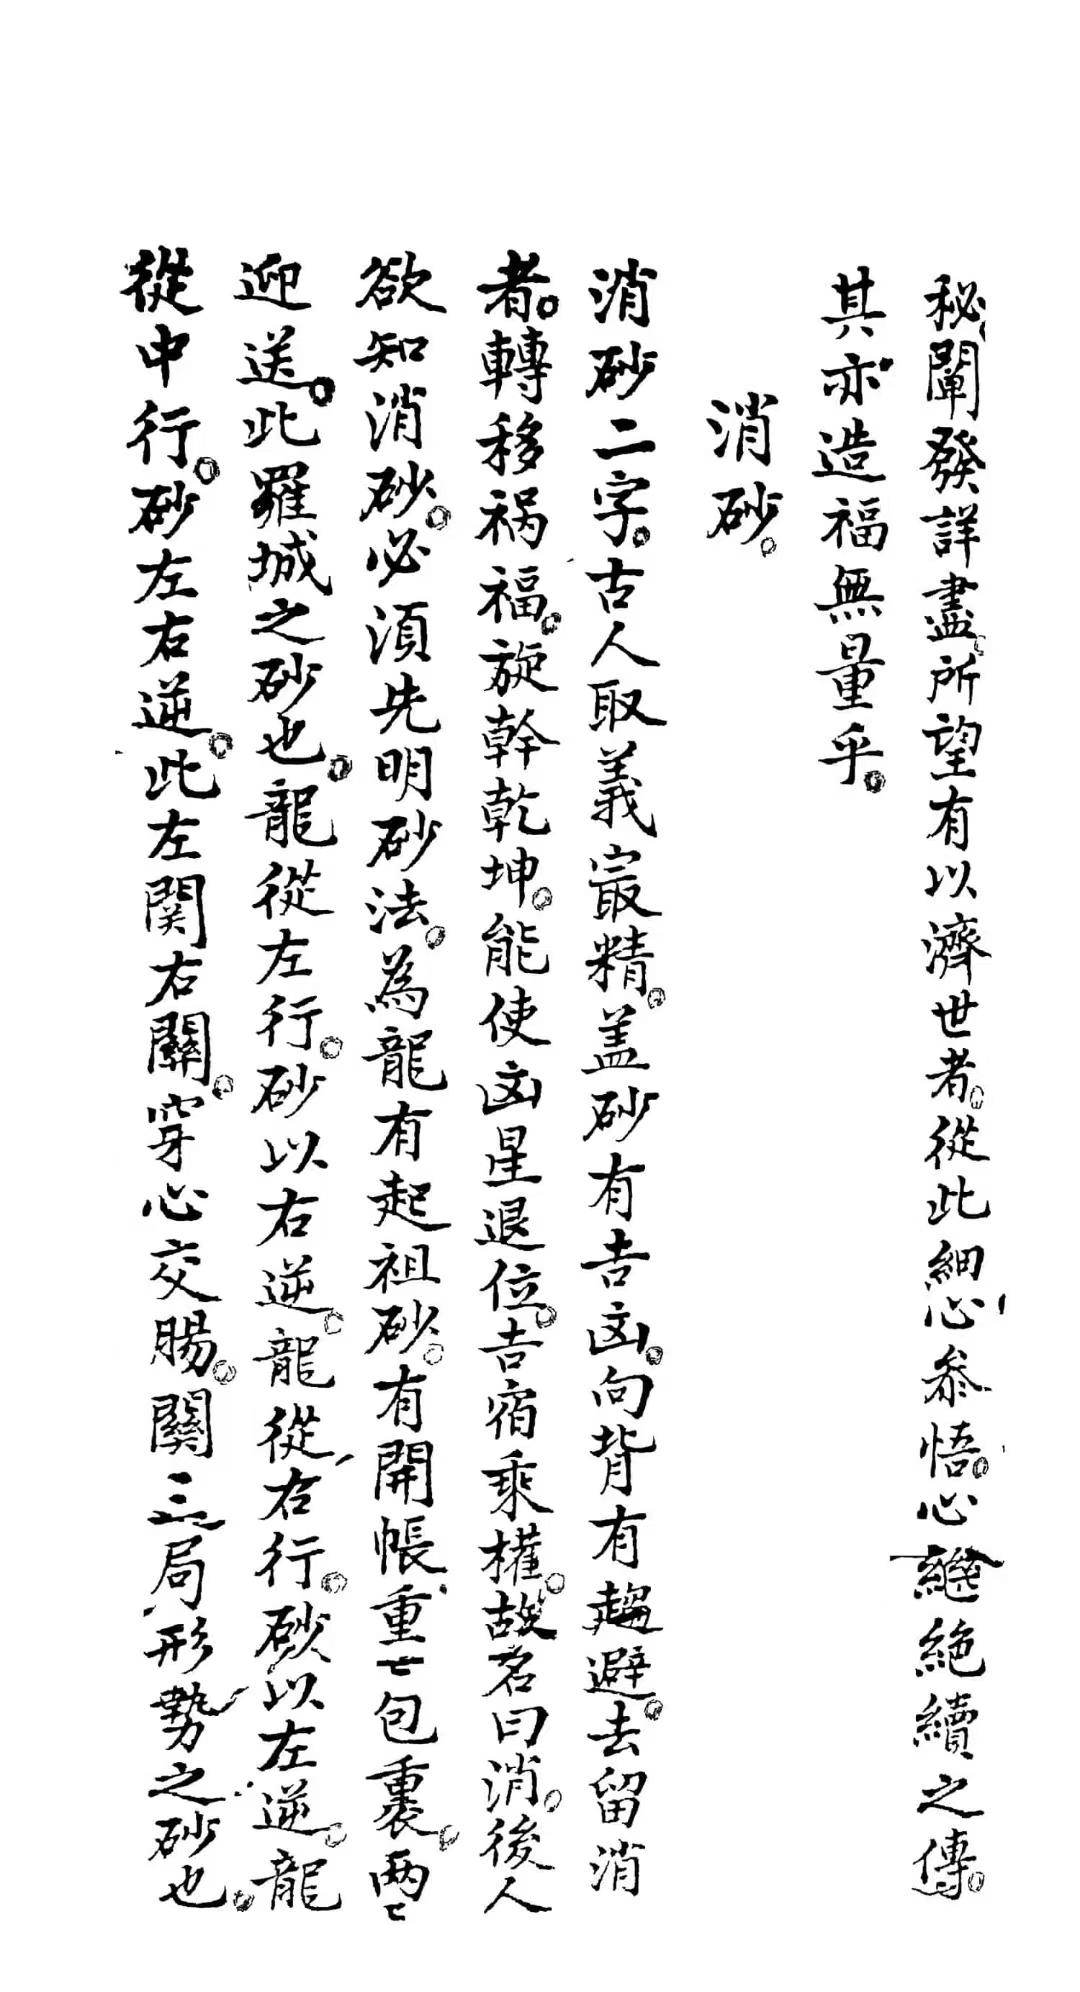 秘闡發詳盡。所望有以濟世者。從此細心叅悟。心繼絶續之傳。
其亦造福無量乎。
消砂。
消砂二字。古人取義冣精。盖砂有吉凶。向背有趨避。去留消
者。轉移祸福。旋幹乾坤。能使凶星退位。吉宿乘權。故名曰消。後人
欲知消砂。必湏先明砂法。為龍有起祖砂。有開帳重〻包裹。两〻
迎送。此羅城之砂也。龍從左行。砂以右逆。龍從右行。砂以左逆。龍
從中行。砂左右逆。此左関右關。穿心交腸。關三局形勢之砂也。